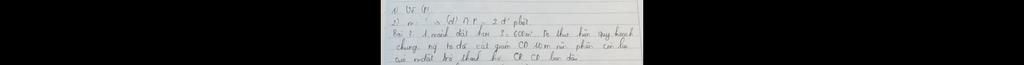 1) Vẽ (P)
2) m = ? → (d) ∩ P = 2 đ' pbiệt
Bài 3: 1 mảnh đất hcn S = 600m² Do thực hiện quy hoạch
chung ng ta đã cắt giảm CD 10m nên phần còn lại
của mđất trở thành hv CR, CD ban đầu